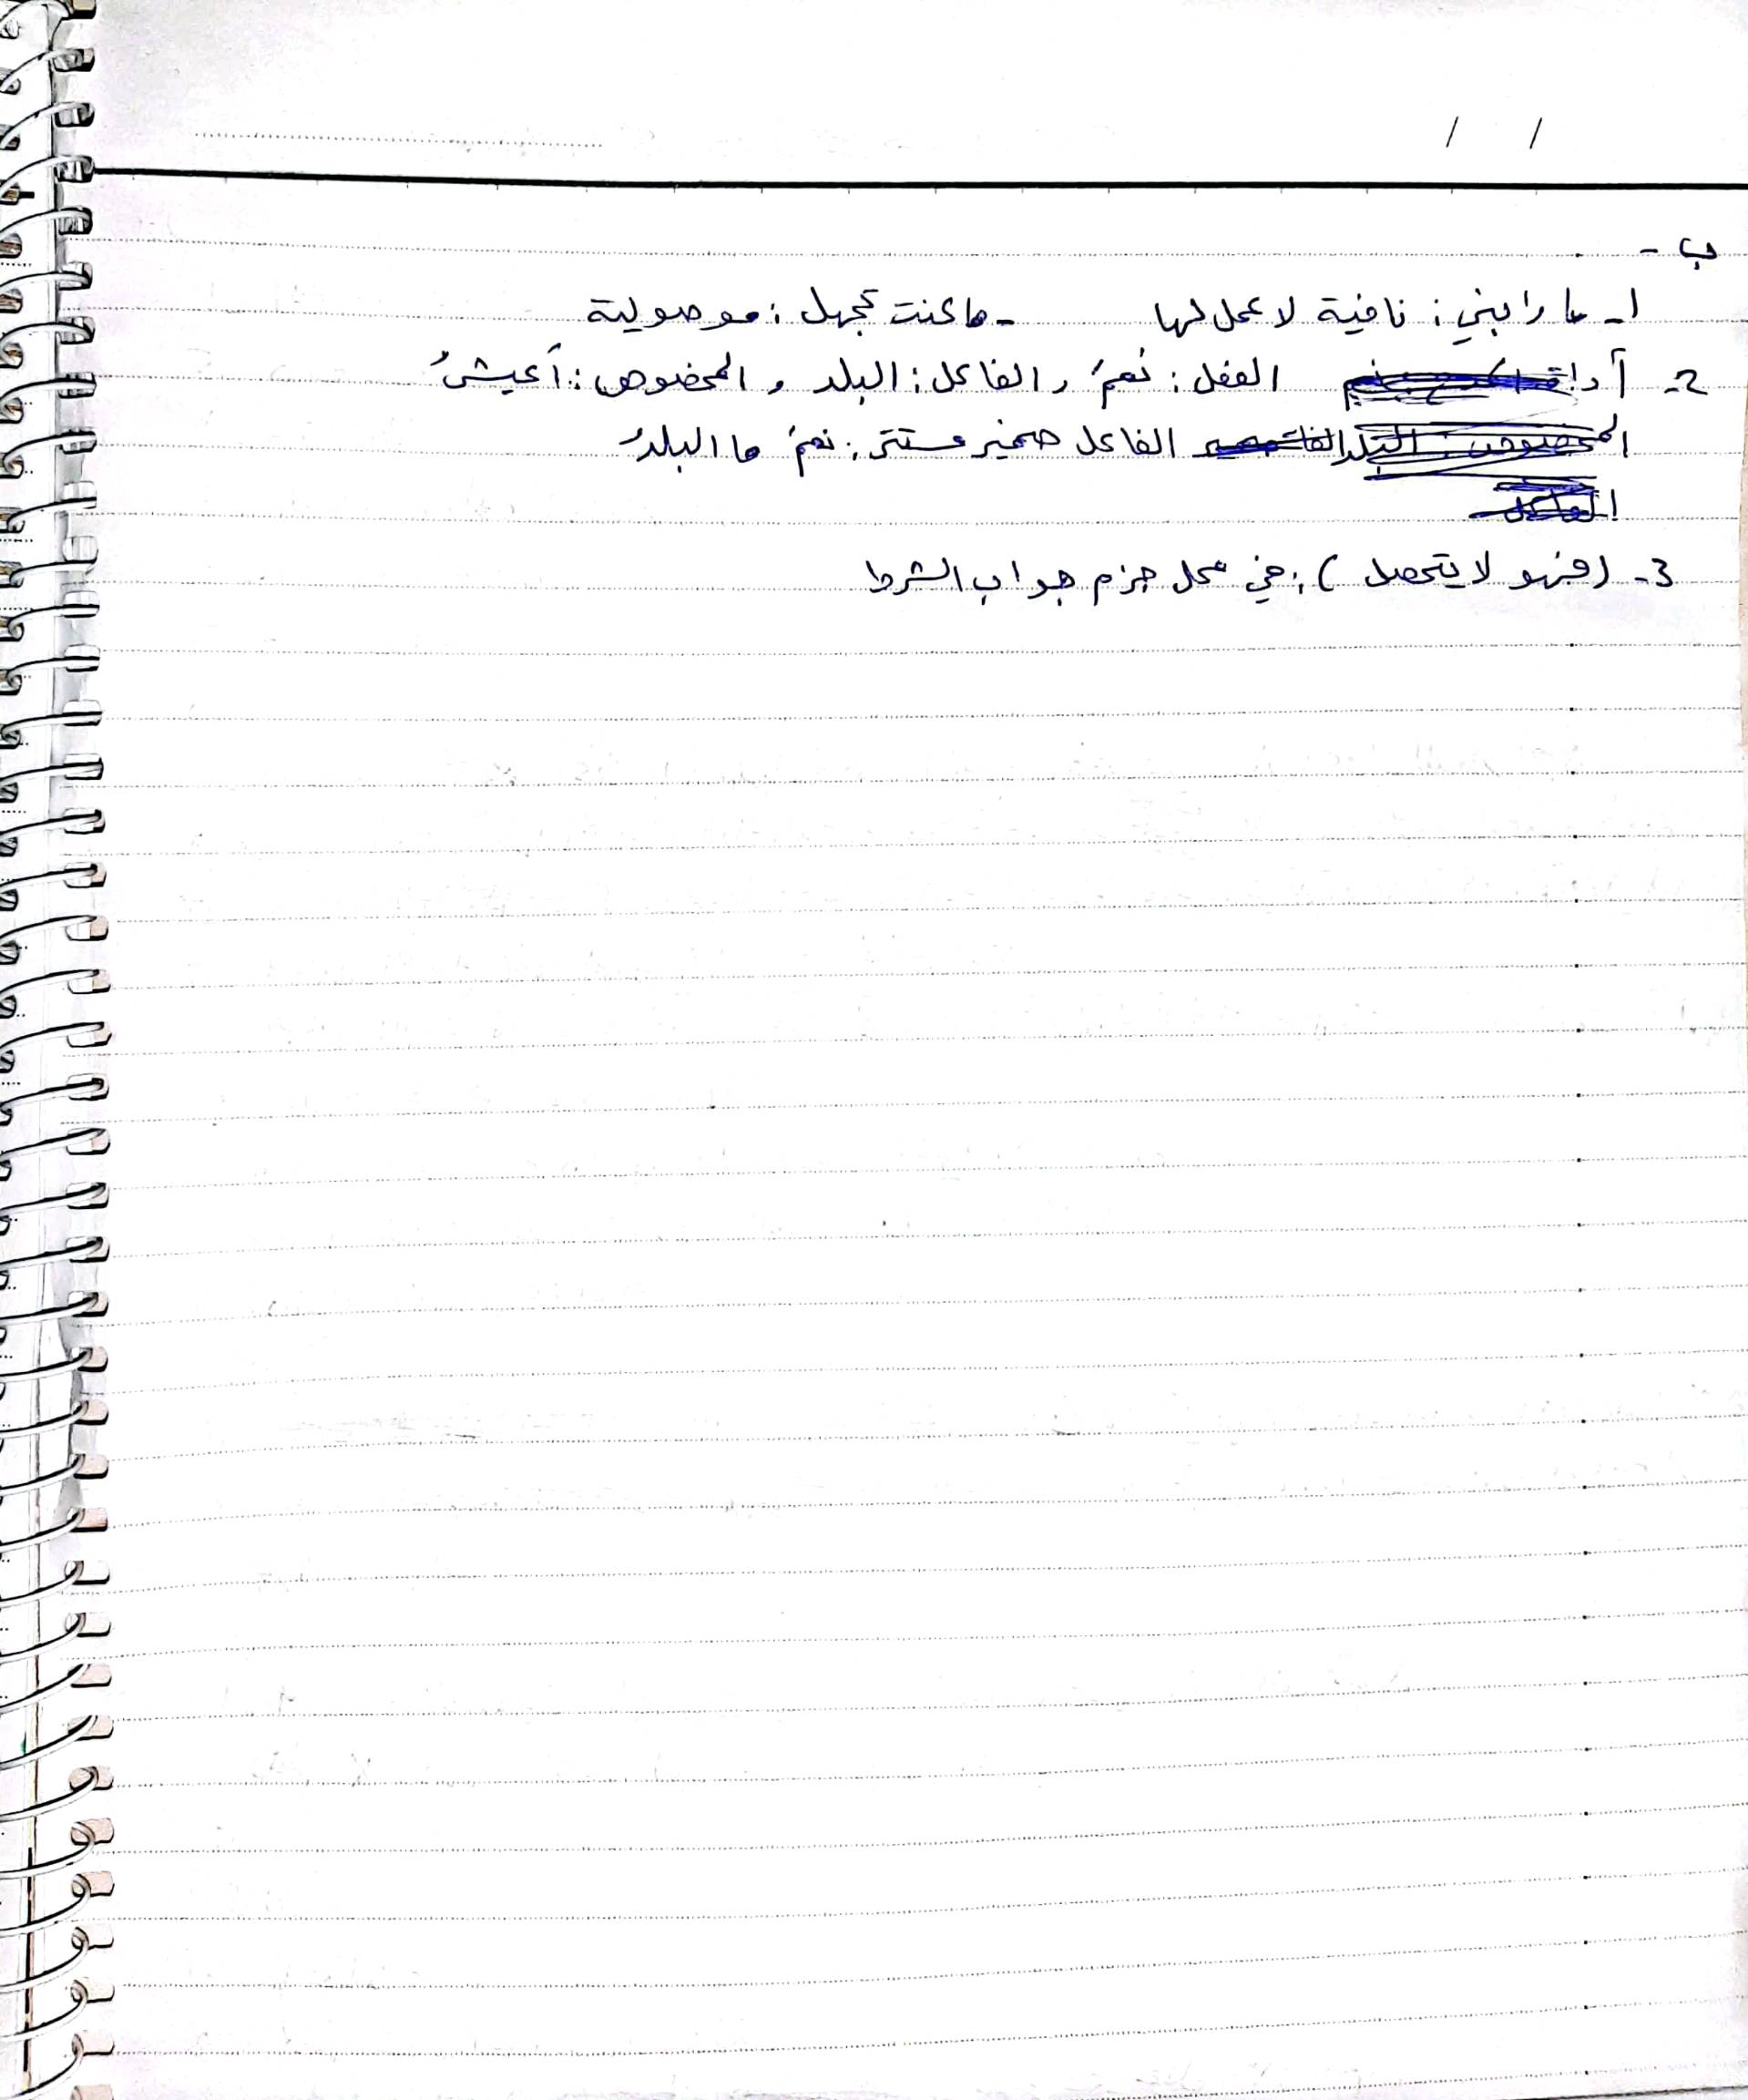 / /
ب -
1- ما رابني : نافية لا عمل لها - ما كنت تجهل : موصولية
2- الفعل : نعمَ , الفاعل : البلد , المخصوص : أعيشُ
الفاعل ضمير مستتر : نعمَ ما البلدُ
3- (فهو لا يتحصل) : في محل جزم جواب الشرط